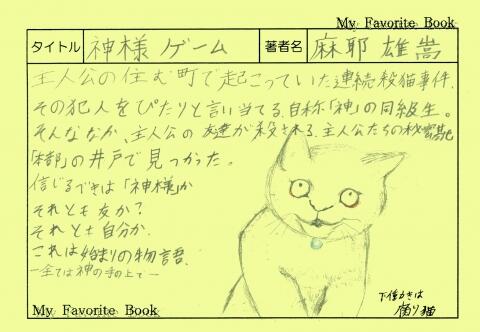 My Favorite Book
タイトル 神様ゲーム 著者名 麻耶 雄嵩
主人公の住む町で起こっていた連続殺猫事件。
その犯人をぴたりと言い当てる、自称「神」の同級生。
そんななか、主人公の友達が殺される、主人公たちの秘密基地
「本部」の井戸で見つかった。
信じるべきは「神様」か
それとも友か?
それとも自分か
これは始まりの物語。
―全ては神の手の上で―
下僕かきは
腐り猫
My Favorite Book